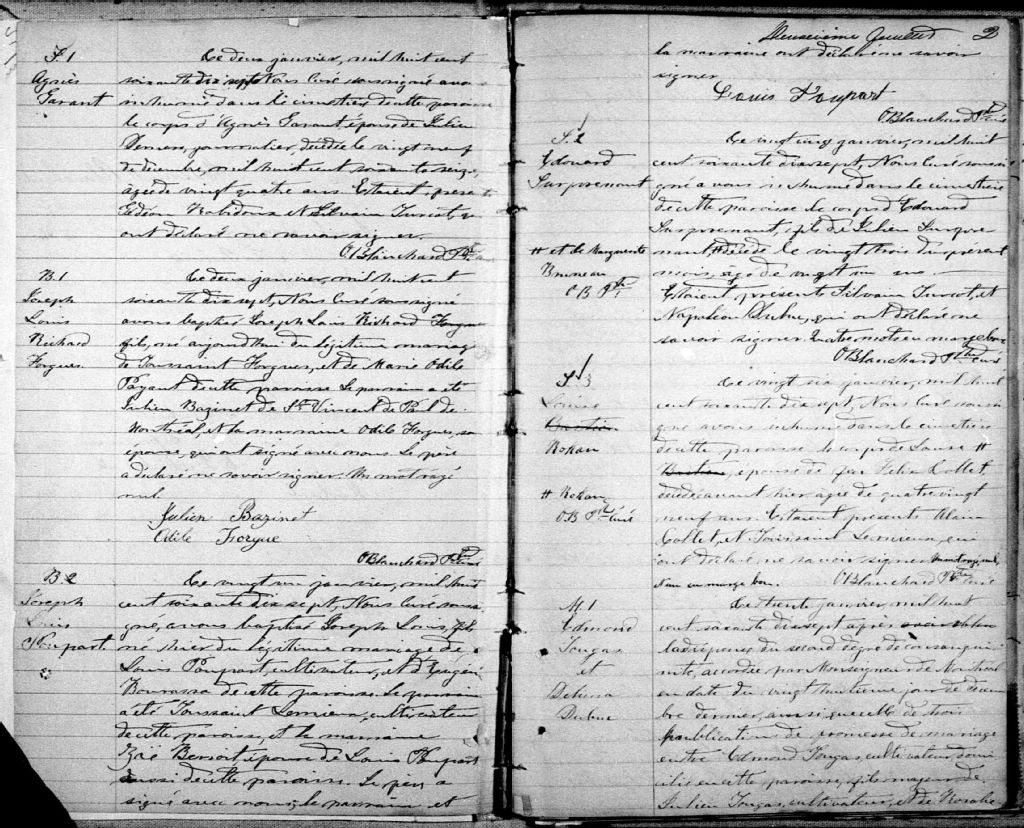 S. 1
Agnès
Garant
Le deux janvier, mil huit cent
soixante dix sept Nous curé soussigné avons
inhumé dans le cimetière de cette paroisse
le corps d'Agnès Garant épouse de Julien
Demers, journalier, décédée le vingt neuf
de décembre, mil huit cent soixante seize,
agée de vingt quatre ans Etaient présents
Gédéon Robidoux et Silvain Tursot qui
ont déclaré ne savoir signer.
O Blanchard Ptre
B. 1
Joseph
Louis
Richard
Forgues
Le deux janvier, mil huit cent
soixante dix sept, Nous curé soussigné
avons baptisé Joseph Louis Richard Forgues
fils, né aujourd'hui du légitime mariage
de Toussaint Forgues, et de Marie Odile
Payant de cette paroisse Le parrain a été
Julien Bazinet de St Vincent de Paul de
Montréal, et la marraine Odile Forgues, son
épouse, qui ont signé avec nous Le père
a déclaré ne savoir signer. Un mot rayé
nul
Julien Bazinet
Odile Forgue
O Blanchard Ptre Curé
B 2
Joseph
Louis
Poupart
Le vingt un janvier, mil huit
cent soixante dix sept, Nous curé soussi
gné, avons baptisé Joseph Louis, fils
né hier du légitime mariage de
Louis Poupart, cultivateur, et d'Eugénie
Bourassa de cette paroisse. Le parrain
a été Toussaint Lemieux, cultivateur
de cette paroisse, et la marraine
Zoé Benoit épouse de Louis Poupart
aussi de cette paroisse. Le père a
signé avec nous, le parrain et
Deuxième feuillet 2
la marraine ont déclaré ne savoir
signer
Louis Poupart
O Blanchard Ptre Curé
S. 2
Edouard
Surprenant
# et de Marguerite
Bruneau
O B Ptre
Le vingt cinq janvier, mil huit
cent soixante dix sept, Nous curé soussi
gné avons inhumé dans le cimetière
de cette paroisse le corps d'Edouard
Surprenant, fils de Julien Surpre
nant,# décédé le vingt trois du présent
mois, agé de vingt un ans
Etaient présents Silvain Tursot, et
Napoléon Dubuc, qui ont déclaré ne
savoir signer Quatre mots en marge bons
O Blanchard Ptre Curé
S. 3
Louise
Rohan
# Rohan
O.B Ptre Curé
Le vingt six janvier, mil huit
cent soixante dix sept, Nous curé soussi
gné avons inhumé dans le cimetière
de cette paroisse le corps de Louise #
épouse de feu Felix Collet
décédée avant hier agée de quatre vingt
neuf ans Etaient présents Alain
Collet, et Toussaint Lemieux, qui
ont déclaré ne savoir signer Un mot rayé nul,
et un en marge bon. O Blanchard Ptre Curé
M. 1
Edmond
Tougas
et
Delima
Dubuc
Le trente janvier, mil huit
cent soixante dix sept après
la dispense du second degré de consangui
nité, accordée par Monseigneur de Montréal
en date du vingt huitième jour de décem
bre dernier, ainsi que celle de trois
publications de promesse de mariage
entre Edmond Tougas, cultivateur domi
cilié en cette paroisse, fils majeur de
Julien Tougas, cultivateur, et de Rosalie